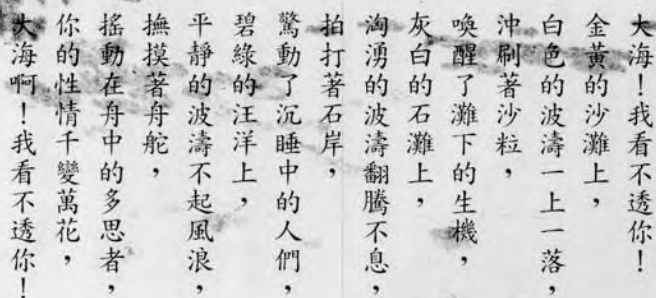 大海！我看不透你！
金黃的沙灘上，
白色的波濤一上一落，
沖刷著沙粒，
喚醒了灘下的生機，
灰白的石灘上，
洶湧的波濤翻騰不息，
拍打著石岸，
驚動了沉睡中的人們，
碧綠的汪洋上，
平靜的波濤不起風浪，
撫摸著舟舵，
搖動在舟中的多思者，
你的性情千變萬花，
大海啊！我看不透你！